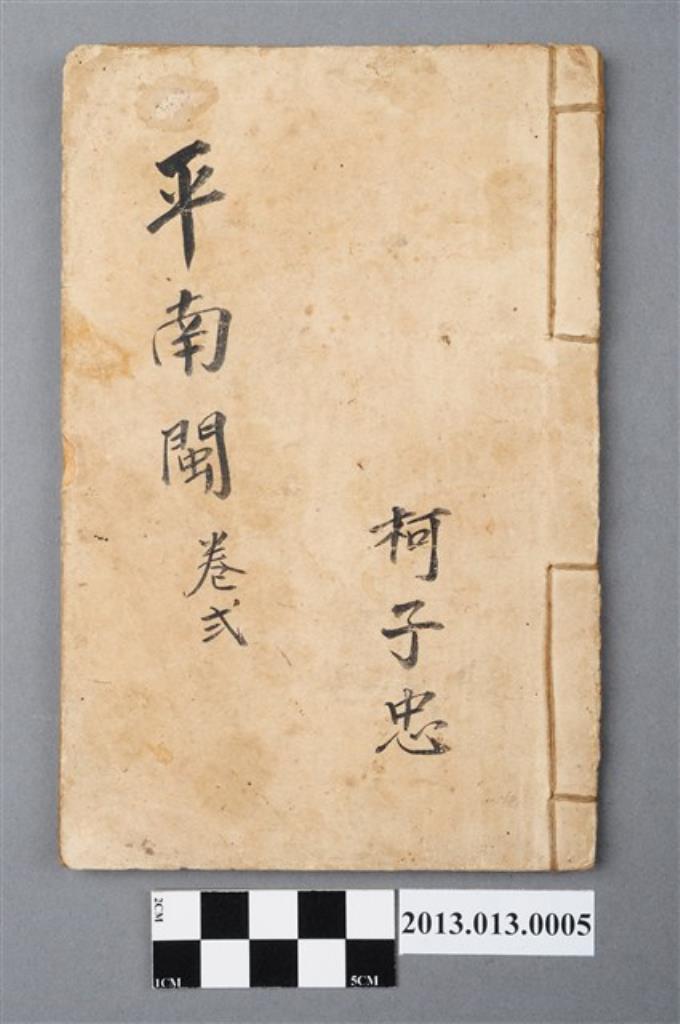 平南閩 卷弍
柯子忠
2CM
1CM
5CM
2013.013.0005